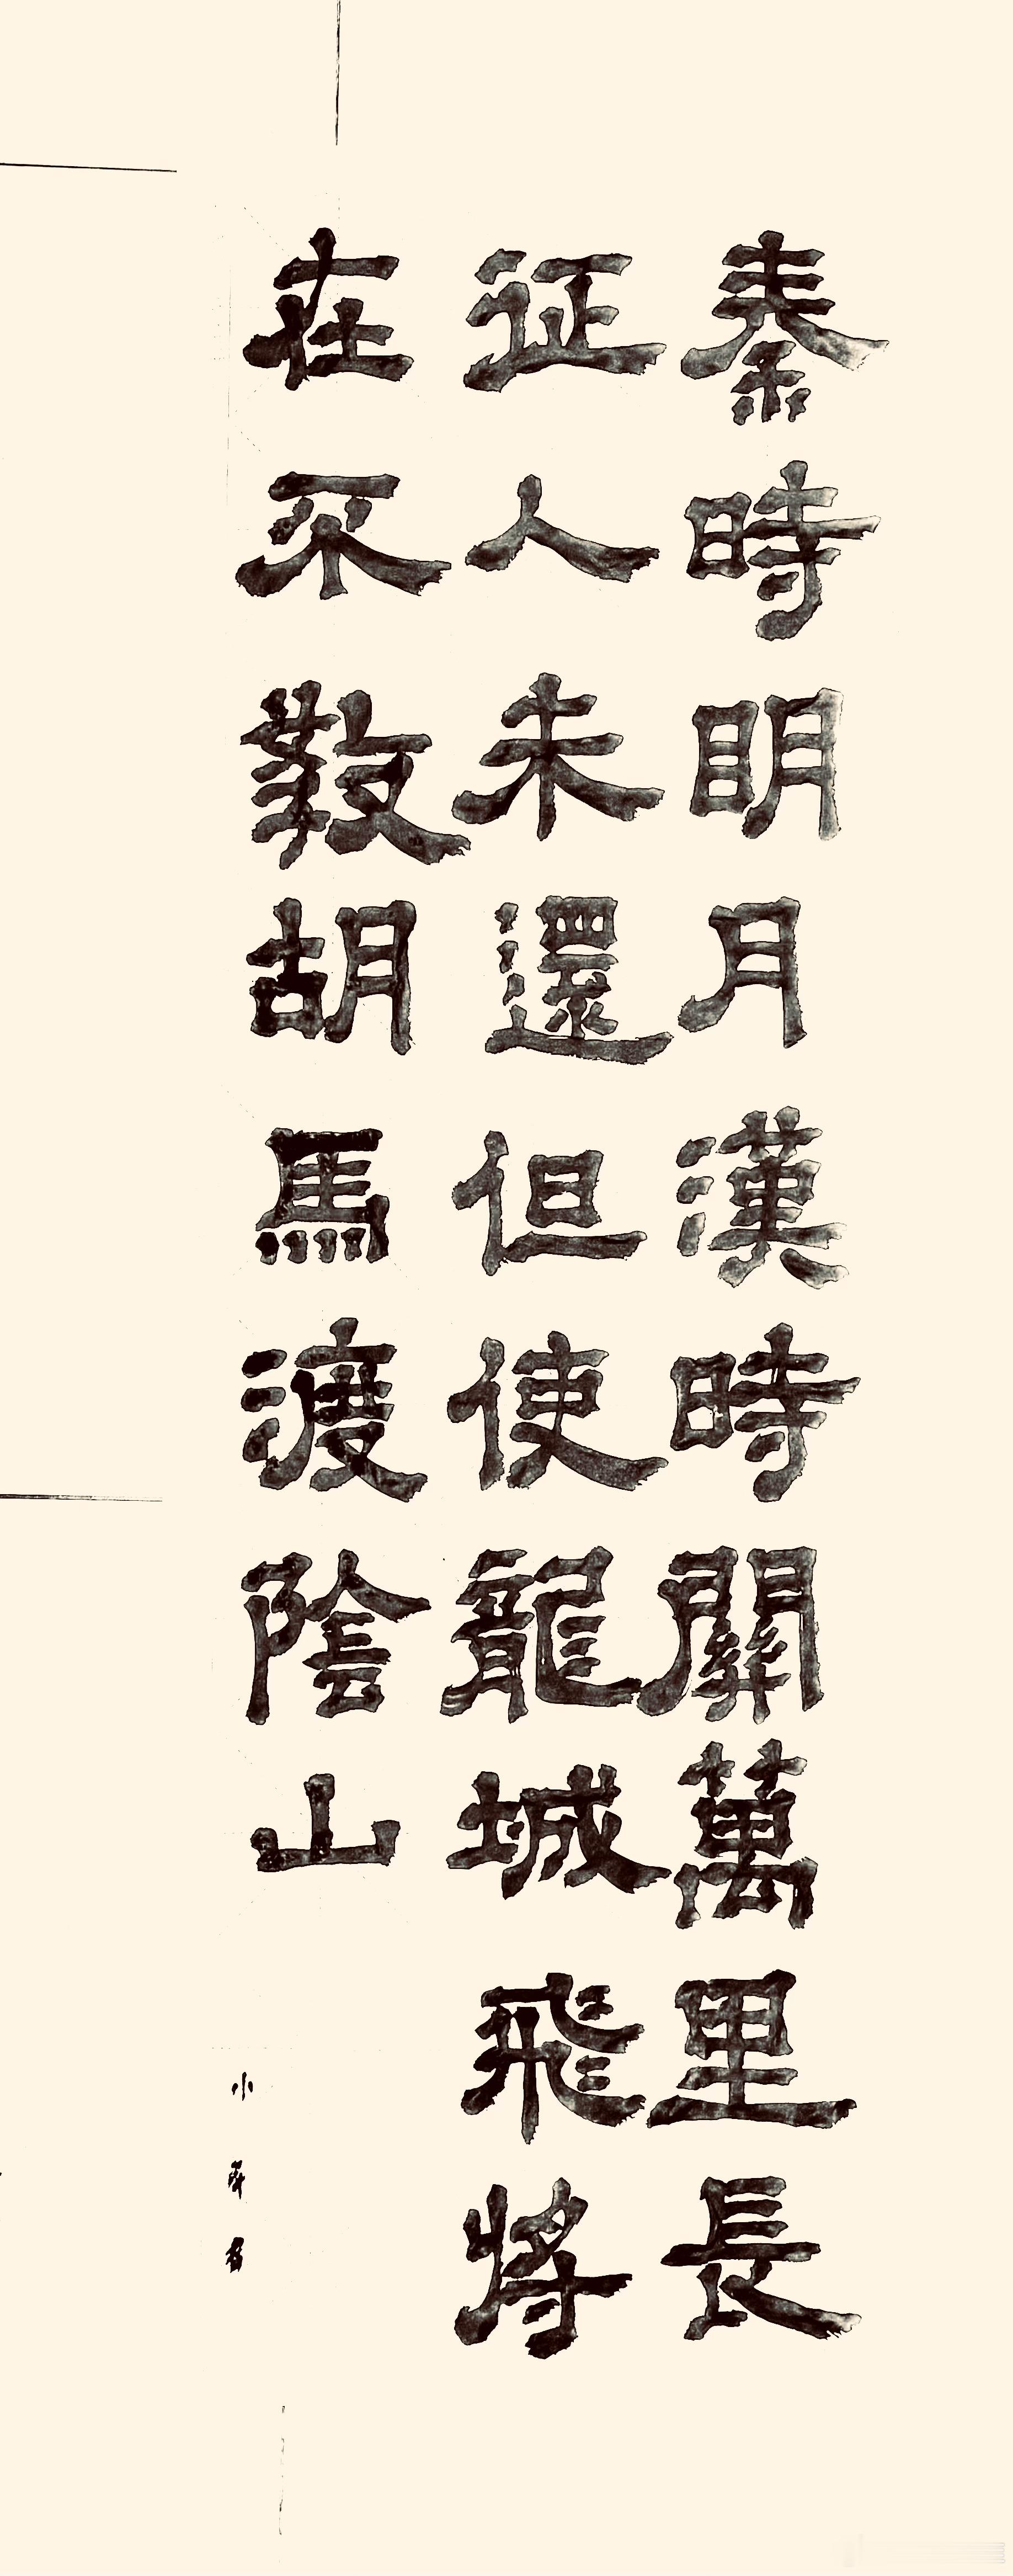 秦時明月漢時關萬里長
征人未還但使龍城飛將
在不教胡馬渡陰山
小